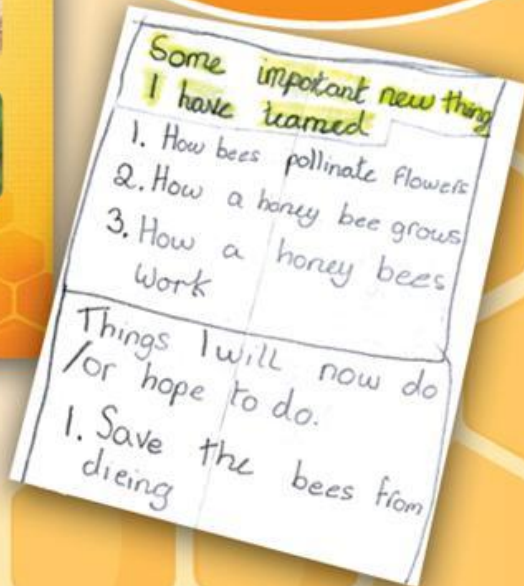 Some impotant new thing
I have learned
1. How bees pollinate flowers
2. How a honey bee grows
3. How a honey bees
work
Things I will now do
/or hope to do.
1. Save the bees from
dieing